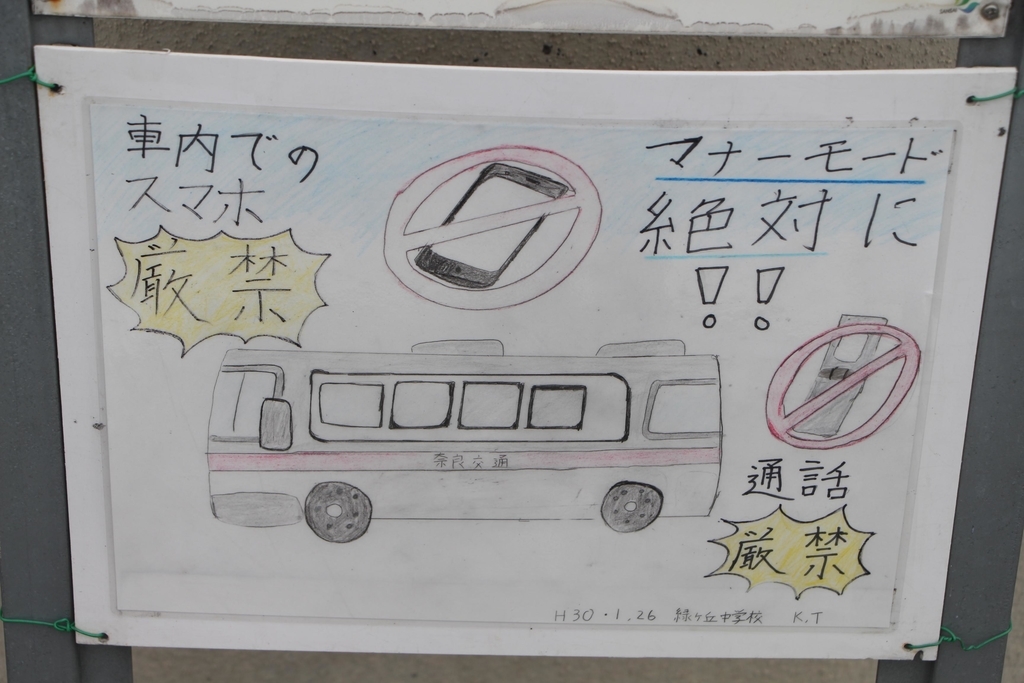 車内での
スマホ
厳禁
マナーモード
絶対に
!!
奈良交通
通話
厳禁
H30・1.26 緑ヶ丘中学校 K.T